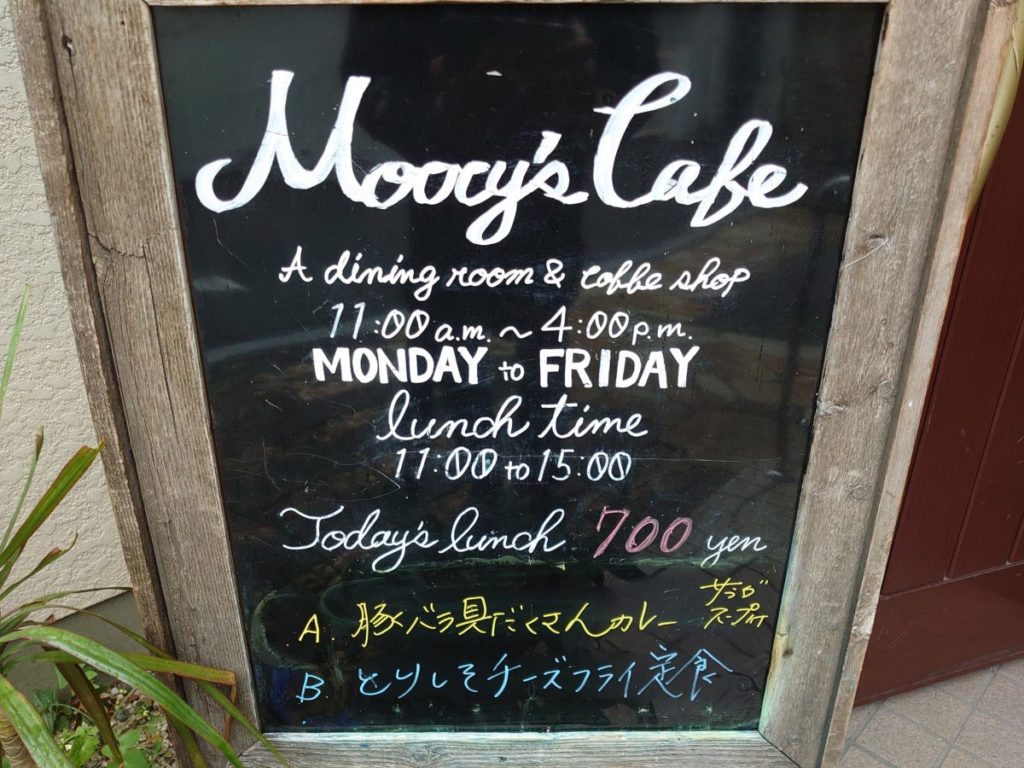 Moory's Cafe
A dining room & coffe shop
11:00 a.m. ~ 4:00 p.m.
MONDAY to FRIDAY
lunch time
11:00 to 15:00
Today's lunch 700 yen
A. 豚バラ具だくさんカレー サラダ スープ付
B. とりしそチーズフライ定食